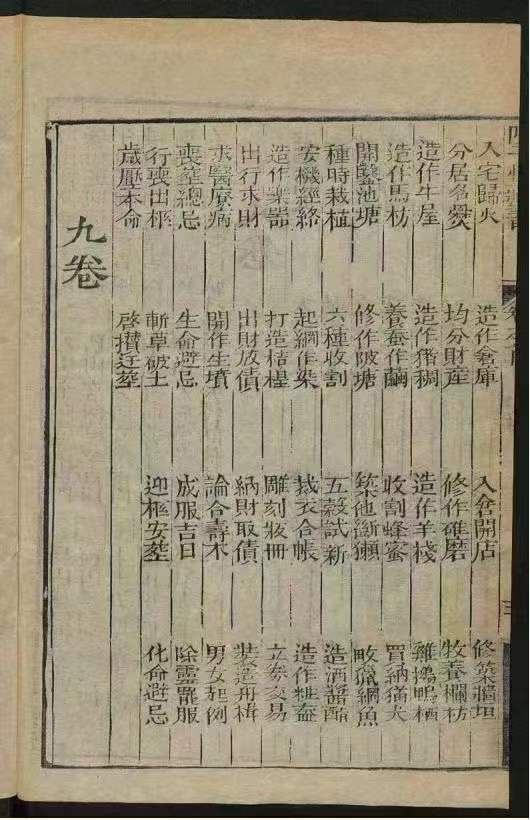 入宅歸火 造作倉庫 入倉開店 修築牆垣
分居各爨 均分財產 修作碓磨 牧養欄枋
造作牛屋 造作猪稠 造作羊棧 雞鵝鴨栖
造作馬枋 養蚕作繭 收割蜂蜜 買納猫犬
開鑿池塘 修作陂塘 築池斷獺 畋獵網魚
種時栽植 六種收割 五穀試新 造酒醬醋
安機經絡 起綱作染 裁衣合帳 造作牲畜
造作樂器 打造桔槔 雕刻妝冊 立劵交易
出行求財 出財放債 納財取債 裝造舟楫
求醫療病 開作生墳 論合壽木 男女起例
喪葬總忌 生命避忌 成服吉日 除靈罷服
行喪出柩 斬草破土 迎柩安葬 化命避忌
歲壓本命 啓攢迁葬
九卷
三